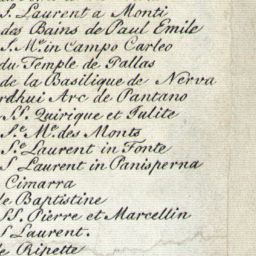 S. Laurent a Monti
das Bains de Paul Emile
S. M.in Campo Carleo
du Temple de Pallas
de la Basilique de Nerva
rdhui Arc de Pantano
SS. Quirique et Julite
S.e M.e des Monts
S.e Laurent in Fonte
S Laurent in Panisperna
Cimarra
de Baptistine
SS. Pierre et Marcellin
S Laurent.
de Ripette